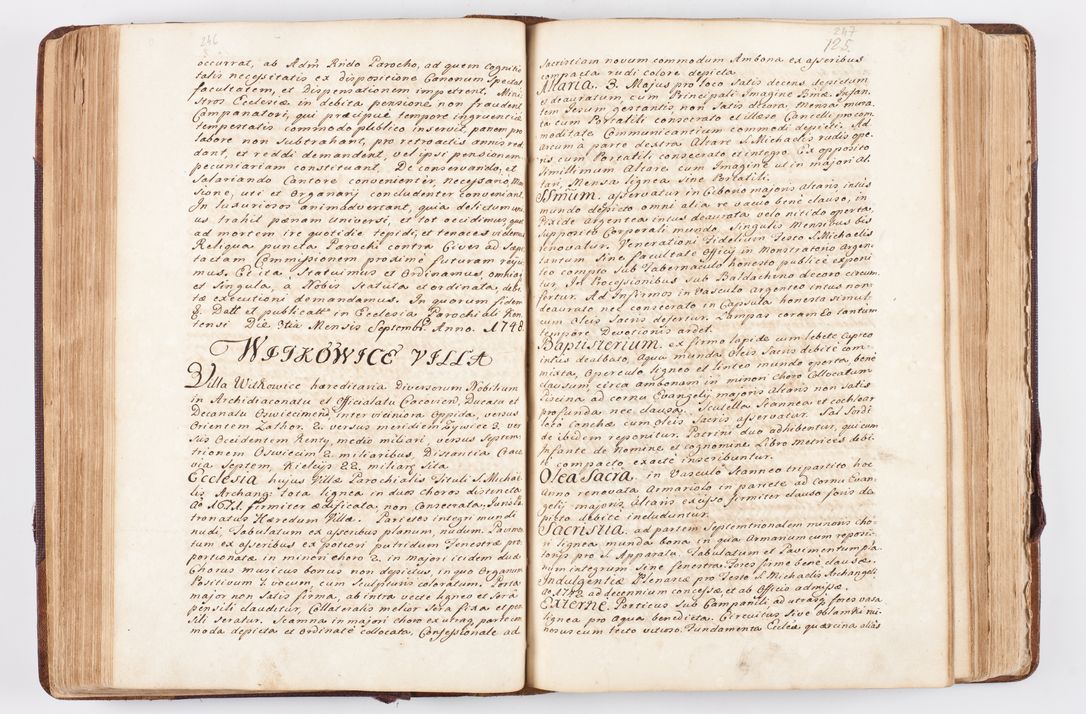 246
occurrat, ab Adm Rndo Parocho, ad quem cognitio
talis necessitatis ex dispositione Canonum Spectat
facultatem, et Dispensationem impetrent. Mini-
stros Ecclesiæ in debita pensione non fraudent
Campanatori, qui præcipue tempore ingruentis
tempestatis commodo publico inservit, panem pro
labore non subtrahant, pro retroactis annis red
dant, et reddi demandent, vel ipsi pensionem
pecuniariam constituant. De conservando, et
Salariando Cantore convenienter, necessario,
sione, uti et Organarij concludenter conveniant
In luxuriosos animadvertant, quia delictum
us trahit pænam universi, et tot occidimus, quot
ad mortem ire quotidie tepidi, et tenaces videmus
Reliqua puncta Parochi contra Cives ad Sæpe
tactam Commissionem proxime futuram reiici
mus. Edita Statuimus et Ordinamus, omniaq
et Singula, a Nobis Statuta et ordinata, debi
tæ executioni demandamus. In quorum fidem
&. Datt et publicatt in Ecclesia Parochiali Ken
tensi Die 3tia Mensis Septembr Anno. 1748.
WITKOWICE VILLA
Villa Witkowice hæreditaria Diversorum Nobilium
in Archidiaconatu et Officialatu Cracovien, Ducatu et
Decanatu Oswiecimens inter viciniora Oppida, versus
Orientem Zathor. 2. versus meridiem Zywiec 3. ver
sus Occidentem Kenty, medio miliari, versus Septem-
trionem Oswiecim 2. miliaribus. Distantia Craco
via Septem, Kielcijs 22. miliarz Sita.
Ecclesia hujus Villæ Parochialis Tituli S. Michae
lis Archang: tota lignea in duos choros distincta
Ao 1671. firmiter ædificata, non Consecrata. Juris Pa
tronatus Hæredum Villæ. Parietes integri mundi
nudi, Tabulatum ex asseribus planum, nudum. Pavimen
tum ex asseribus ex potiori putridum Fenestræ pro
portionatæ in minori choro 2. in majori itidem duæ
Chorus musicus bonus non depictus, in quo Organum
Positivum 7. vocum, cum Sculpturis coloratum. Porta
major non Satis firma, ab intra vecte ligneo et Sera
pensili clauditur, Collateralis melior Sera fixa et pen
sili Seratur. Scamna in majori choro ex utraq partem
moda depicta et ordinate collocata, Confessionale ad
247
125.
Sacristiam novum commodum Ambona ex asseribus
compacta rudi colore depicta.
Altaria. 3. Majus pro loco Satis decens depictum
et deauratum, cum Principali Imagine Bmæ Infan-
tem Jesum gestantis non Satis decora, mensa mura
ta cum Portatili consecrato et illæso Cancelli pro com
moditate Communicantium commodi depicti. Ad
arcum à parte dextra Altare S. Michaelis rudis ope-
ris cum Portatili consecrato et integro. Ex opposito
simillimum Altare cum Imagine ut in majori Al-
tari, Mensa lignea Sine Portatili.
SSmum. asservatur in Ciborio majoris altaris intus
mundo depicto omni alia re vacuo bene clauso, in
Pixide argentea intus deaurata velo nitido operta,
supposito Corporali mundo. Singulis Mensibus bis
renovatur. Venerationi Fidelium Festo S. Michaelis
tantum Sine facultate Officij in Monstratorio Argen
teo compto Sub Tabernaculo honesto publice exponi
tur, In Processionibus Sub Baldachino decoro circum
fertur. Ad Infirmos in Vasculo argenteo intus non
deaurato nec consecrato in Capsula honesta simul
cum Oleis Sacris defertur. Lampas coram Eo tantum
tempore Devotionis ardet.
Baptisterium. ex firmo lapide cum lebete cupreo
intus dealbato, Aqua munda Oleis Sacris debite com-
mixta, operculo ligneo et linteo mundo operta, bene
clausum, circa ambonam in minori choro Collocatum
Piscina ad cornu Evangelij majoris altaris non Satis
profunda nec clausa. Scutella Stannea et cochlear
loco Conchæ cum Oleis Sacris asservatur. Sal Solidi
de ibidem reponitur. Patrini duo adhibentur, qui cum
Infante de Nomine et cognomine Libro Metrices debi-
te compacto exacte inscribuntur.
Olea Sacra. in Vasculo Stanneo tripartito hoc
Anno renovata Armariolo in pariete ad Cornu Evan-
gelij majoris Altaris exciso firmiter clauso foris de
picto debite includuntur.
Sacristia. ad partem Septemtrionalem minoris cho
ri lignea munda bona in qua Armarium cum reposi-
torijs pro S. Apparatu. Tabulatum et Pavimentum pla
num integrum. Sine fenestra. Fores firme bene clausæ.
Indulgentiæ Plenariæ pro Festo S. Michaelis Archangeli
Ao 1742 ad decennium concessæ et ab Officio admissæ.
Externe. Porticus Sub Campanili, ad utrasq fores vasa
lignea pro aqua benedicta. Circuitus Sive Oblamki rui-
nosus cum tecto vetusto. Fundamenta Eccleæ quærcina aliàs